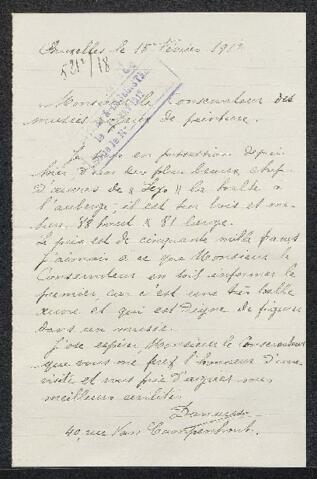 Bruxelles le 15 février 191
521²/18
Monsieur le Conservateur des
musées de peinture.
Je en possession depuis
hier d'un des plus beaux chef
d'œuvres de
l'auberge, il est sur bois et
88 haut & 81 large.
Le prix est de cinquante mille francs
J'aimais a ce que Monsieur le
Conservateur en soit informer le
premier, car c'est une très belle
œuvre et qui est digne de figurer
dans un musée.
J'ose espérer, Monsieur le Conservateur
que vous me ferez l'honneur d'une
visite et vous prie d'agréer mes
meilleurs
40, rue Van Campenhout.